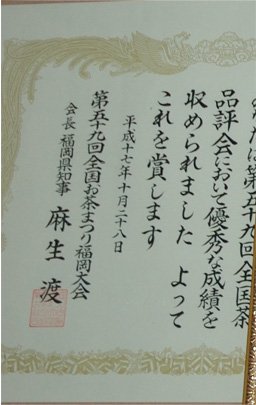 あなたは第五十九回全国茶
品評会において優秀な成績を
収められました よって
これを賞します
平成十七年十月二十八日
第五十九回全国お茶まつり福岡大会
会長 福岡県知事 麻生 渡